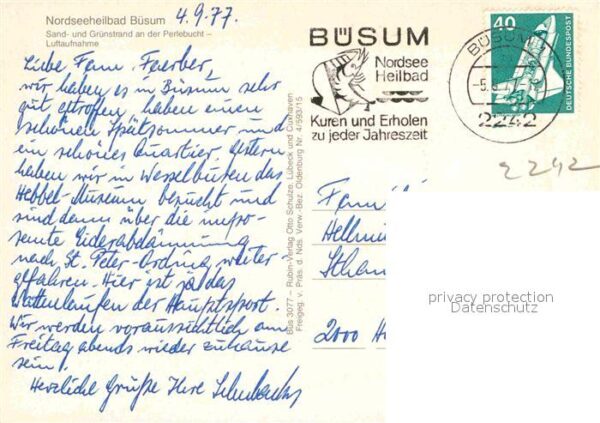 Nordseeheilbad Büsum
Sand- und Grünstrand an der Perlebucht –
Luftaufnahme
4.9.77.
Liebe Fam.
wir haben es in Büsum sehr
gut getroffen, haben einen
schönen Spätsommer und
ein schönes Quartier. Gestern
haben wir in Wesselburen das
Hebbel-Museum besucht und
sind dann über die impo-
sante Eiderabdämmung
nach St. Peter-Ording weiter-
gefahren. Hier ist ja das
Wattenlaufen der Hauptsport.
Wir werden voraussichtlich am
Freitag abends wieder zuhause
sein!
Herzliche Grüße Ihre
Büs 3077 – Rubin-Verlag Otto Schulze, Lübeck und Cuxhaven
Freigeg. v. Präs. d. Nds. Verw.-Bez. Oldenburg Nr. 4/593/15
BÜSUM
Nordsee
Heilbad
Kuren und Erholen
zu jeder Jahreszeit
BÜSUM
2242
40
DEUTSCHE BUNDESPOST
2242
2000 H
privacy protection
Datenschutz